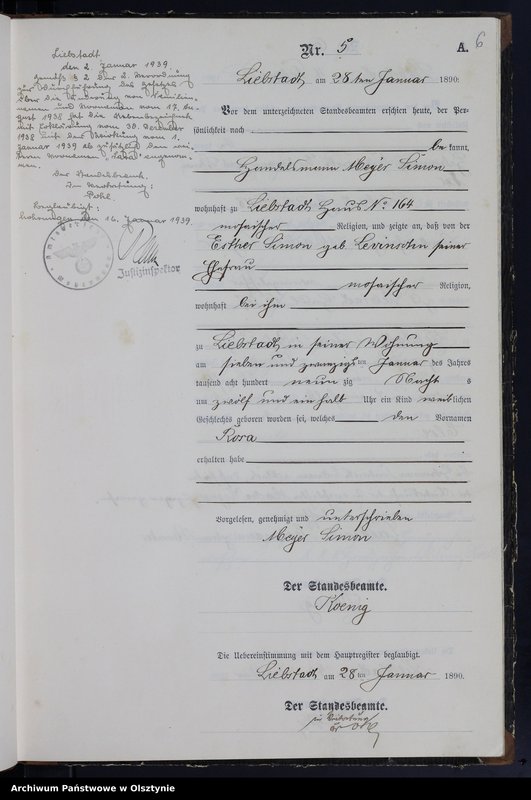 Nr. 5
A.
6
Liebstadt
den 2. Januar 1939.
Gemäß § 2 der 2. Verordnung
zur Durchführung des Gesetzes
über die Änderung von Familien-
namen und Vornamen vom 17. Au-
gust 1938 hat die Nebenbezeich-
mit Erklärung vom 30. Dezember
1938 mit der Wirkung vom 1.
Januar 1939 als zusätzlich den wei-
teren Vornamen „Sara“ angenom-
men.
Der Standesbeamte.
In Vertretung:
Pohl.
Beglaubigt:
Mohrungen, den 16. Januar 1939.
Justizinspektor
Liebstadt am 28 ten Januar 1890.
Vor dem unterzeichneten Standesbeamten erschien heute, der Per-
sönlichkeit nach
be kannt,
Handelsmann Meyer Simon
wohnhaft zu Liebstadt Haus No 164
mosaischer Religion, und zeigte an, daß von der
Esther Simon geb. Levinsohn seiner
Ehefrau
mosaischer Religion,
wohnhaft bei ihm
zu Liebstadt in seiner Wohnung
am sieben und zwanzigsten Januar des Jahres
tausend acht hundert neunzig Nachts
um zwölf und ein halb Uhr ein Kind weiblichen
Geschlechts geboren worden sei, welches den Vornamen
Rosa
erhalten habe
Vorgelesen, genehmigt und unterschrieben
Meyer Simon
Der Standesbeamte.
Koenig
Die Uebereinstimmung mit dem Hauptregister beglaubigt.
Liebstadt am 28 ten Januar 1890.
Der Standesbeamte.
in Vertretung
Archiwum Państwowe w Olsztynie